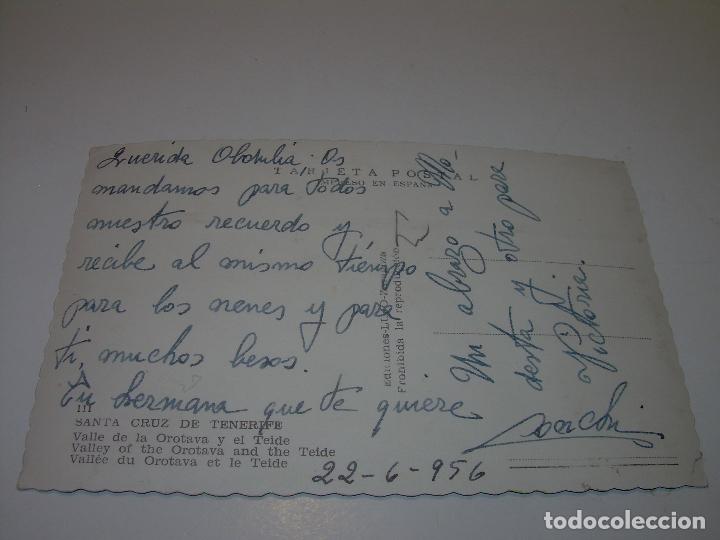 TARJETA POSTAL
IMPRESO EN ESPAÑA
Querida Obdulia: Os
mandamos para todos
nuestro recuerdo y
recibe al mismo tiempo
para los nenes y para
ti, muchos besos.
Tu hermana que te quiere
Un abrazo a Mo-
desta y otro para
Victoria.
Prohibida la reproducción
111
SANTA CRUZ DE TENERIFE
Valle de la Orotava y el Teide
Valley of the Orotava and the Teide
Vallée du Orotava et le Teide
22-6-956
todocoleccion
todocoleccion.net